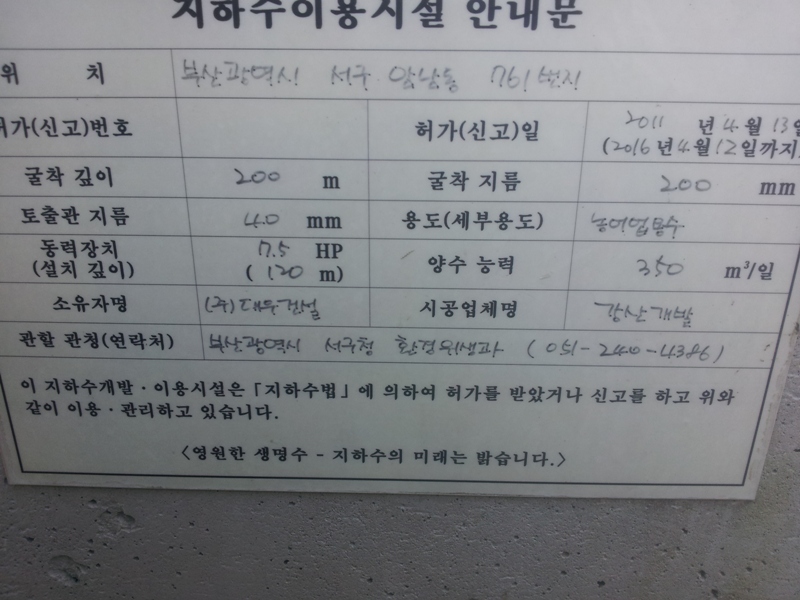 지하수이용시설 안내문
위 치 부산광역시 서구 암남동 761번지
허가(신고)번호 허가(신고)일 2011 년 4월 13일
(2016년 4월 12일까지)
굴착 깊이 200 m 굴착 지름 200 mm
토출관 지름 40 mm 용도(세부용도) 농어업용수
동력장치 7.5 HP
(설치 깊이) ( 120 m) 양수 능력 350 m³/일
소유자명 (주)대우건설 시공업체명 강산개발
관할 관청(연락처) 부산광역시 서구청 환경위생과 (051-240-4386)
이 지하수개발·이용시설은 「지하수법」에 의하여 허가를 받았거나 신고를 하고 위와
같이 이용·관리하고 있습니다.
<영원한 생명수 - 지하수의 미래는 밝습니다.>